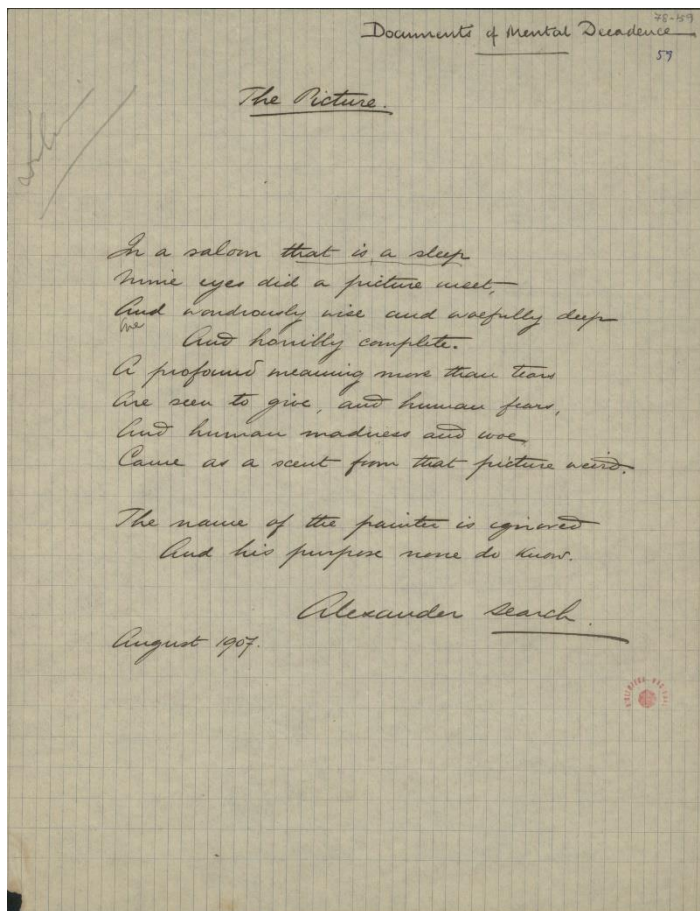 78-59
Documents of Mental Decadence
59
The Picture.
In a saloon that is a sleep
Mine eyes did a picture meet,
And wondrously wise and woefully deep
And horribly complete.
A profound meaning more than tears
Are seen to give, and human fears,
And human madness and woe
Came as a scent from that picture weird.
The name of the painter is ignored
And his purpose none do know.
Alexander Search.
August 1907.